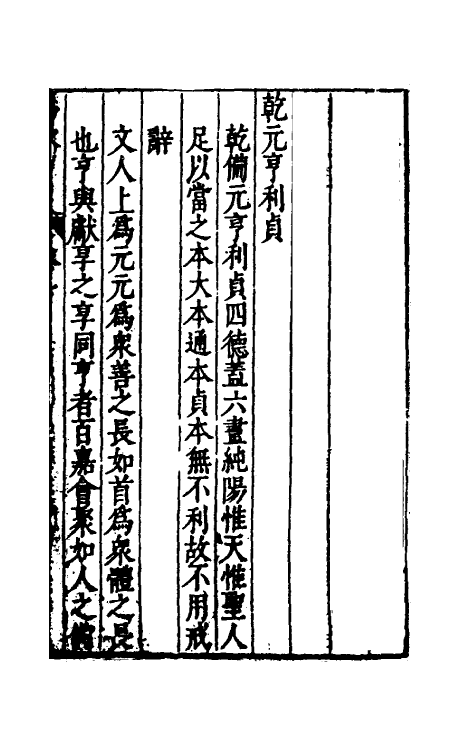 乾元亨利貞
乾備元亨利貞四德蓋六畫純陽惟天惟聖人
足以當之本大本通本貞本無不利故不用戒
辭
文人上爲元元爲衆善之長如首爲衆體之長
也亨與獻享之享同亨者百嘉會聚如人之